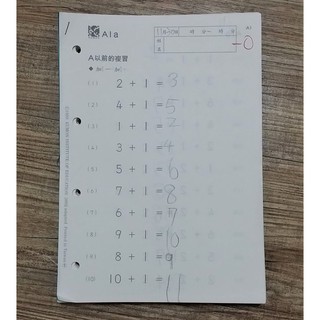 A1a
A以前的複習
(1) 2 + 1 = 3
(2) 4 + 1 = 5
(3) 1 + 1 = 2
(4) 3 + 1 = 4
(5) 5 + 1 = 6
(6) 7 + 1 = 8
(7) 6 + 1 = 7
(8) 9 + 1 = 10
(9) 8 + 1 = 9
(10) 10 + 1 = 11
-0